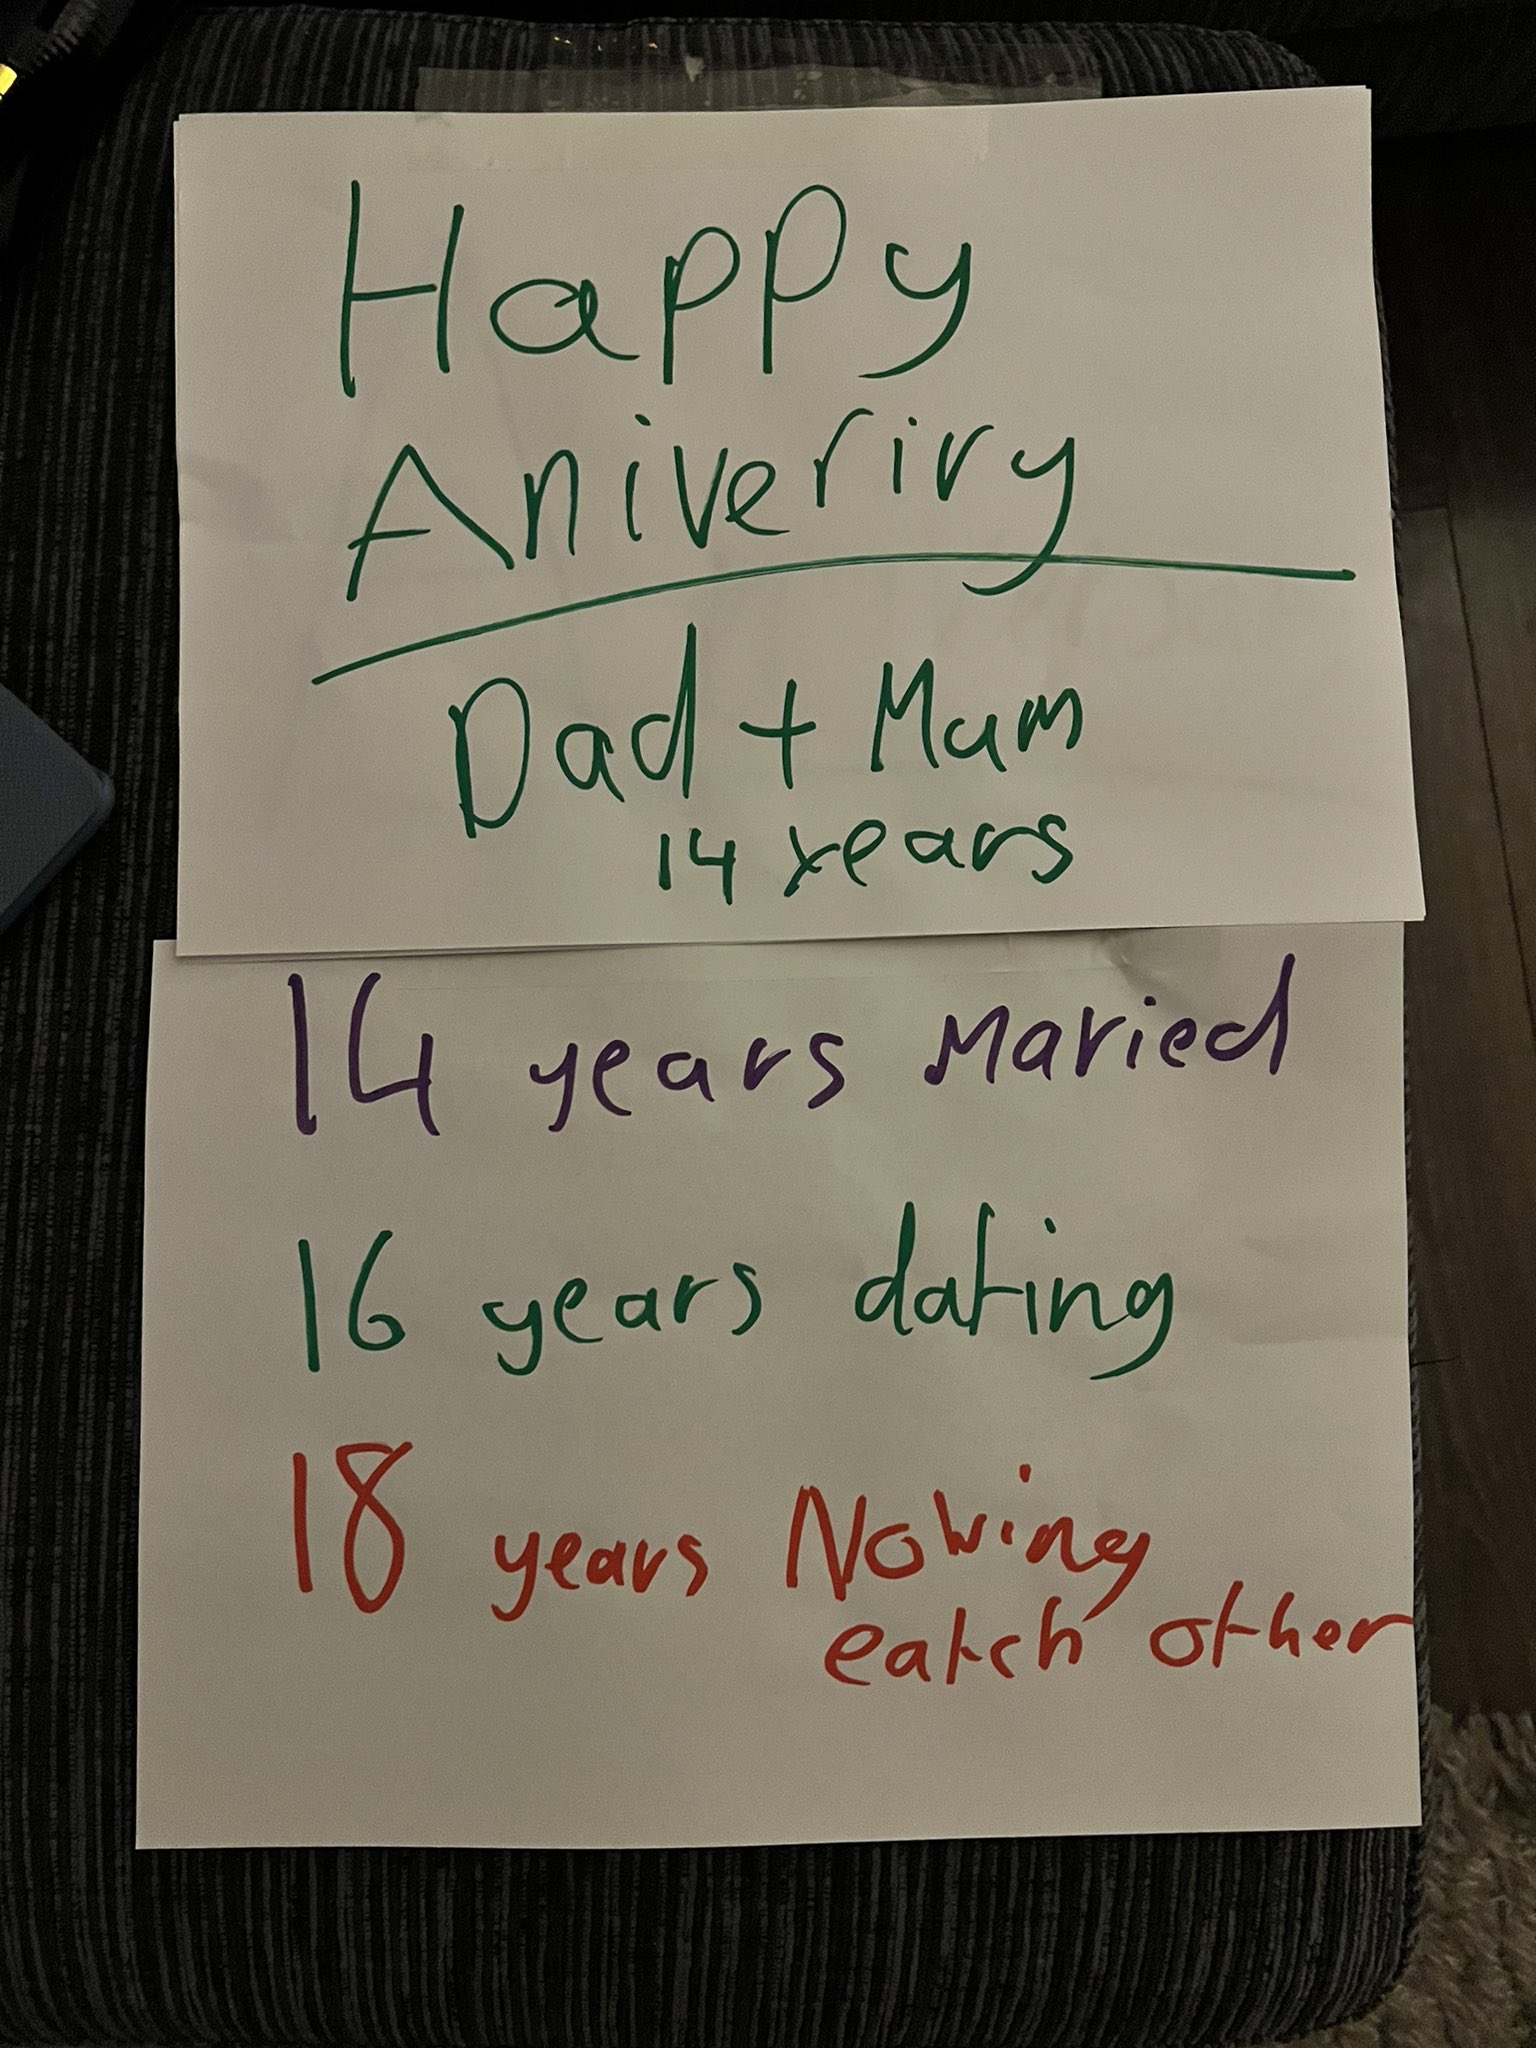 Happy
Aniveriry
Dad + Mum
14 years
14 years Maried
16 years dating
18 years Nowing
eatch other